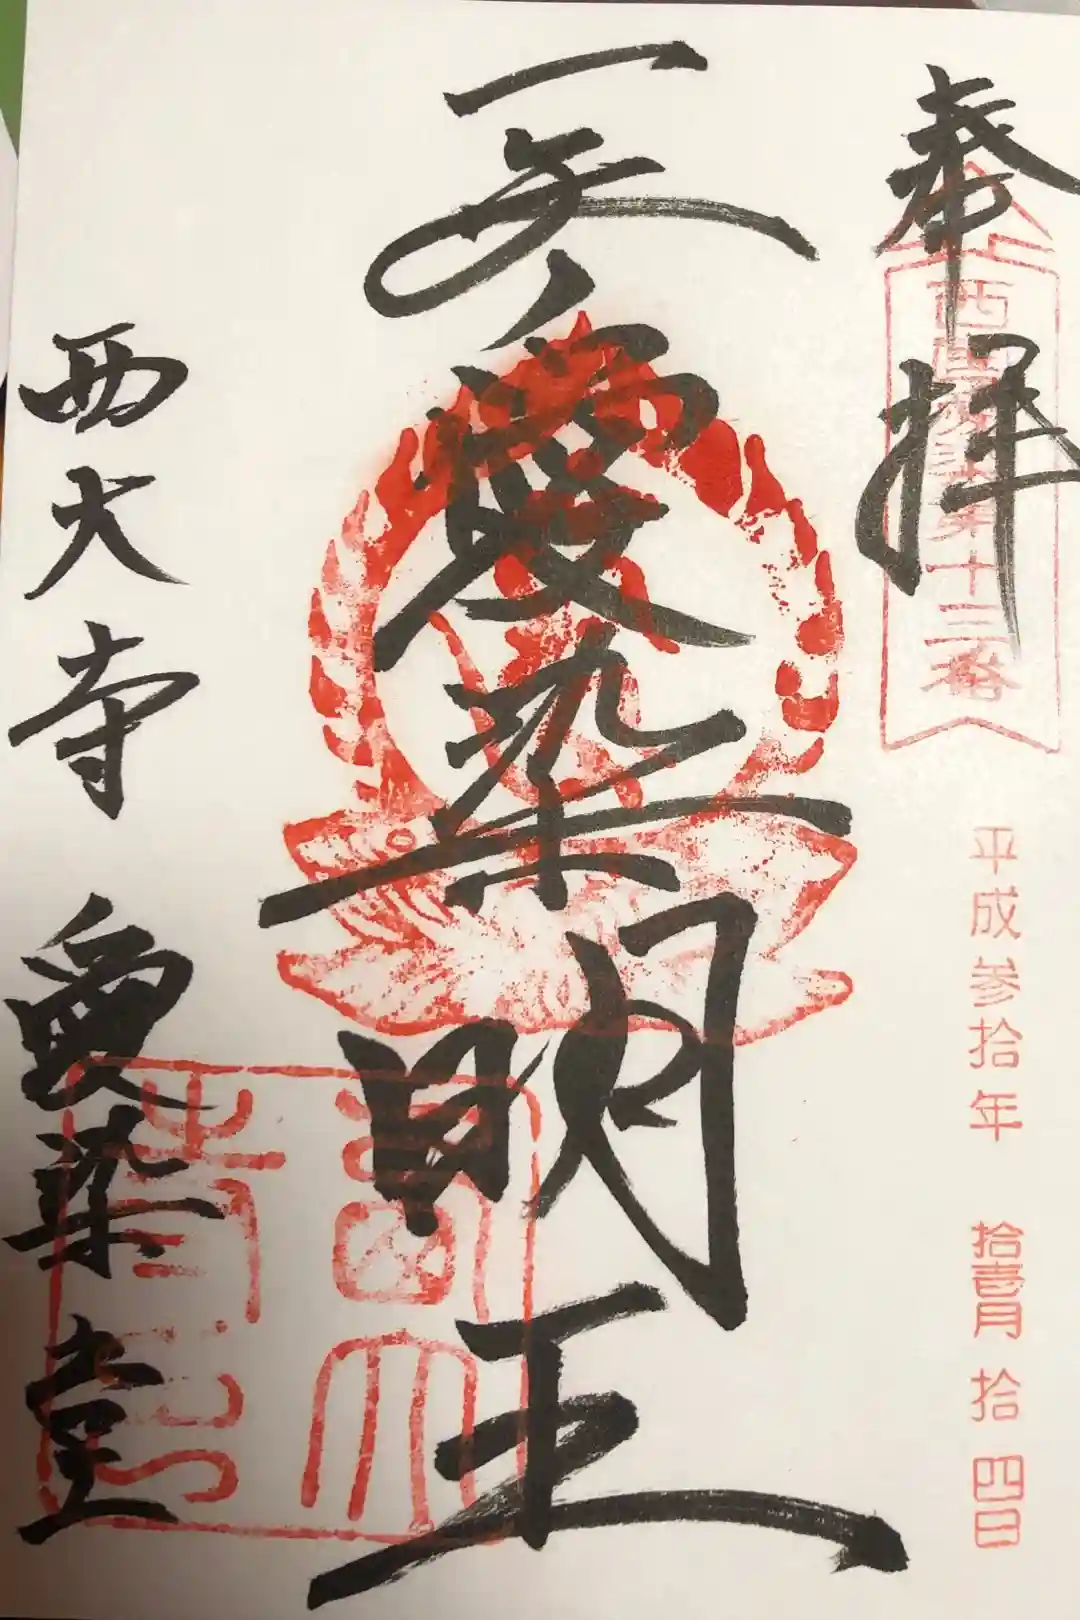 奉拝
西国愛染第十三番
平成参拾年 拾壱月 拾四日
愛染明王
西大寺 愛染堂